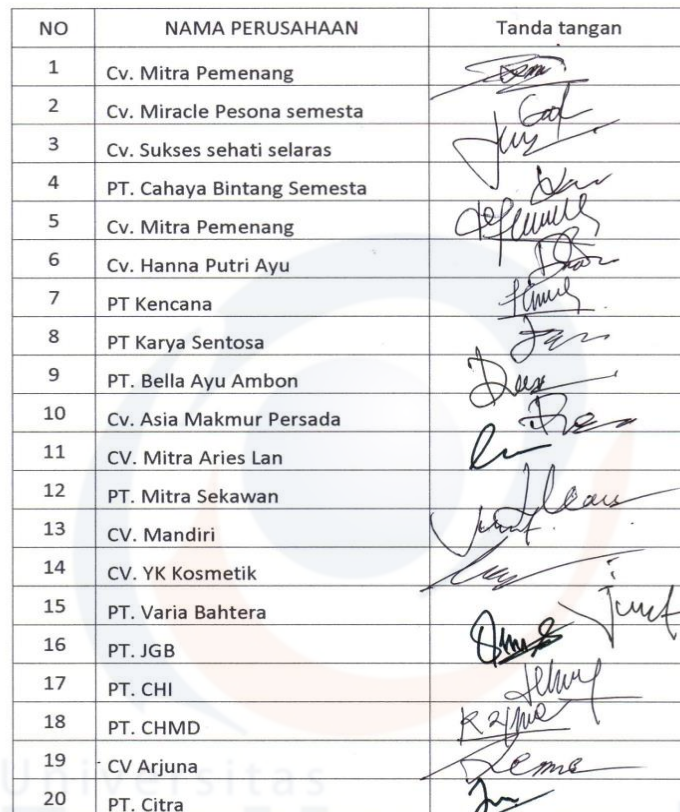 NO NAMA PERUSAHAAN Tanda tangan
1 Cv. Mitra Pemenang
2 Cv. Miracle Pesona semesta
3 Cv. Sukses sehati selaras
4 PT. Cahaya Bintang Semesta
5 Cv. Mitra Pemenang
6 Cv. Hanna Putri Ayu
7 PT Kencana
8 PT Karya Sentosa
9 PT. Bella Ayu Ambon
10 Cv. Asia Makmur Persada
11 CV. Mitra Aries Lan
12 PT. Mitra Sekawan
13 CV. Mandiri
14 CV. YK Kosmetik
15 PT. Varia Bahtera
16 PT. JGB
17 PT. CHI
18 PT. CHMD
19 CV Arjuna
Universitas
20 PT. Citra